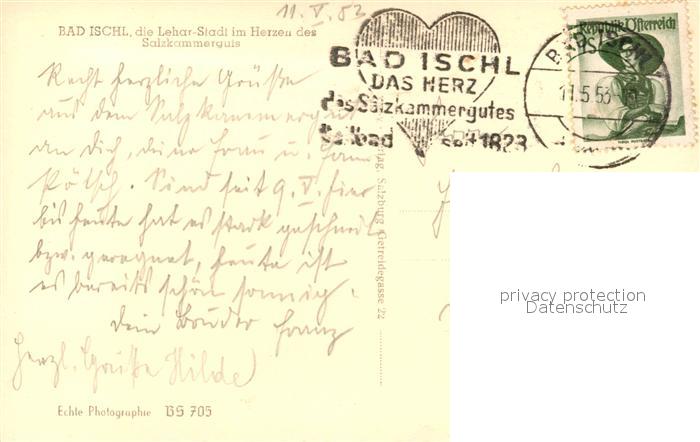 11. V. 53
BAD ISCHL, die Lehar-Stadt im Herzen des
Salzkammerguts
BAD ISCHL
DAS HERZ
des Salzkammergutes
Solbad seit 1823
BAD ISCHL
11.5.53
Republik Österreich
Recht herzliche Grüße
aus dem Salzkammergut
an dich, deine Frau u. Fam.
Sind seit 9. V. hier
bis heute hat es stark geschneit
bzw. geregnet, heute ist
es bereits schön sonnig.
Dein Bruder Franz
Herzl. Grüße Hilde
Verlag, Salzburg, Getreidegasse 22
privacy protection
Datenschutz
Echte Photographie BS 705